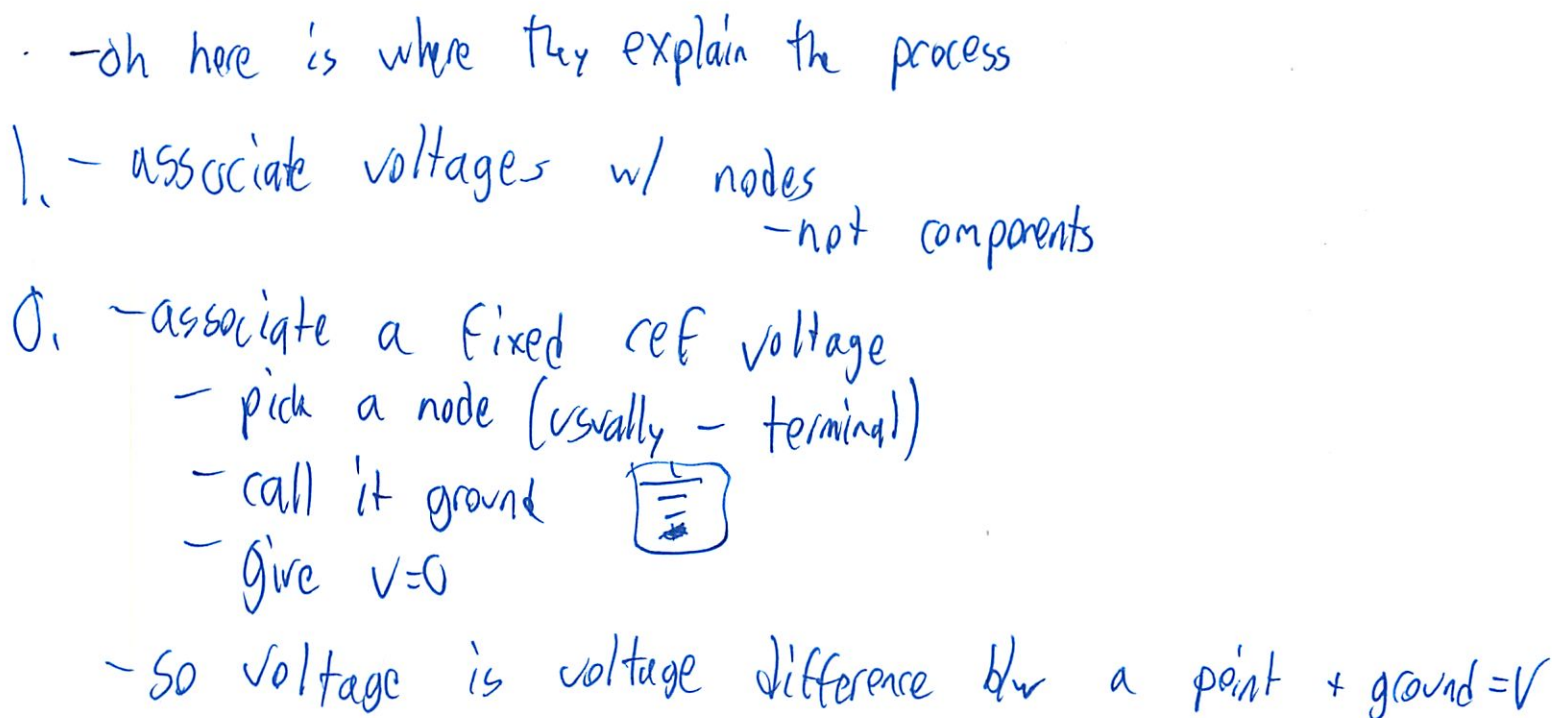 - oh here is where they explain the process
1. - associate voltages w/ nodes
- not components
0. - associate a fixed ref voltage
- pick a node (usually - terminal)
- call it ground
- give V=0
- So voltage is voltage difference b/w a point + ground = V